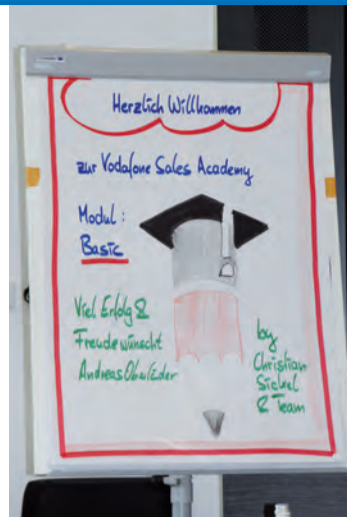 Herzlich Willkommen
zur Vodafone Sales Academy
Modul:
Basic
Viel Erfolg &
Freude wünscht
Andreas
by
Christian
Sickel
& Team